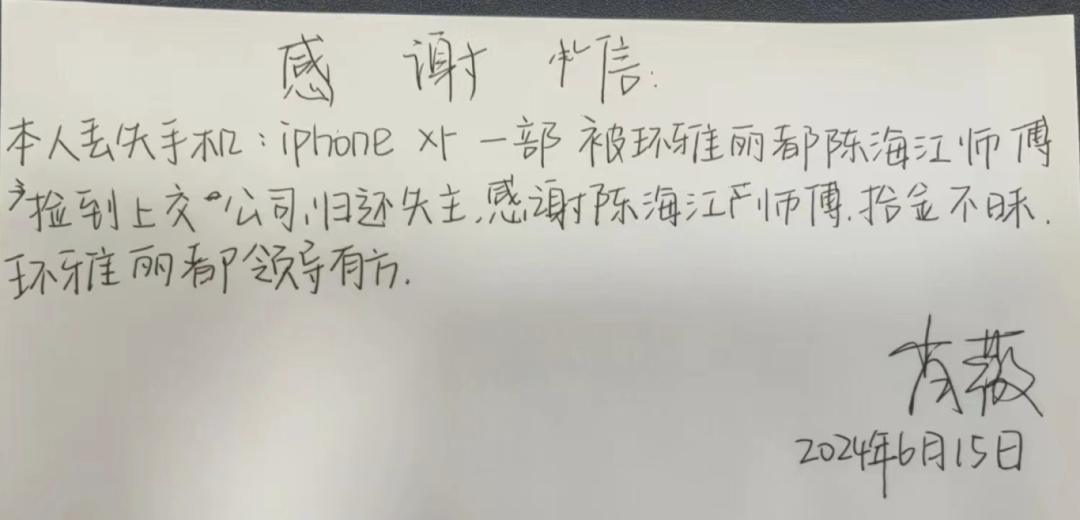 感谢信:
本人丢失手机:iphone xr 一部 被环雅丽都陈海江师傅
捡到上交公司,归还失主,感谢陈海江师傅.拾金不昧.
环雅丽都领导有方.
肖薇
2024年6月15日